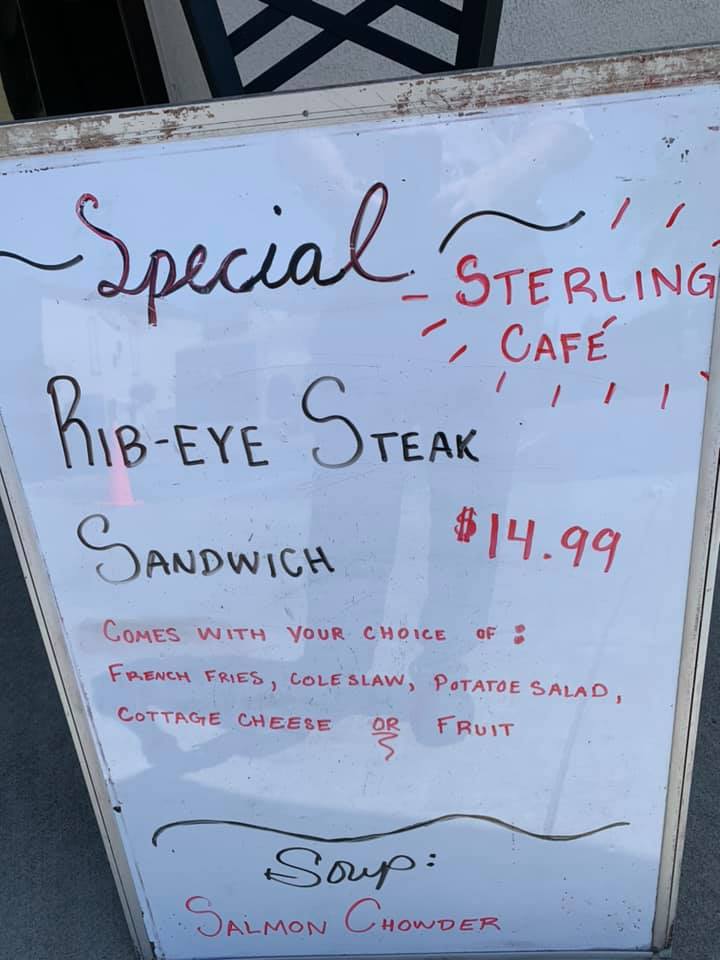 Special
STERLING
CAFÉ
RIB-EYE STEAK
SANDWICH $14.99
COMES WITH YOUR CHOICE OF :
FRENCH FRIES, COLESLAW, POTATOE SALAD,
COTTAGE CHEESE OR FRUIT
Soup:
SALMON CHOWDER